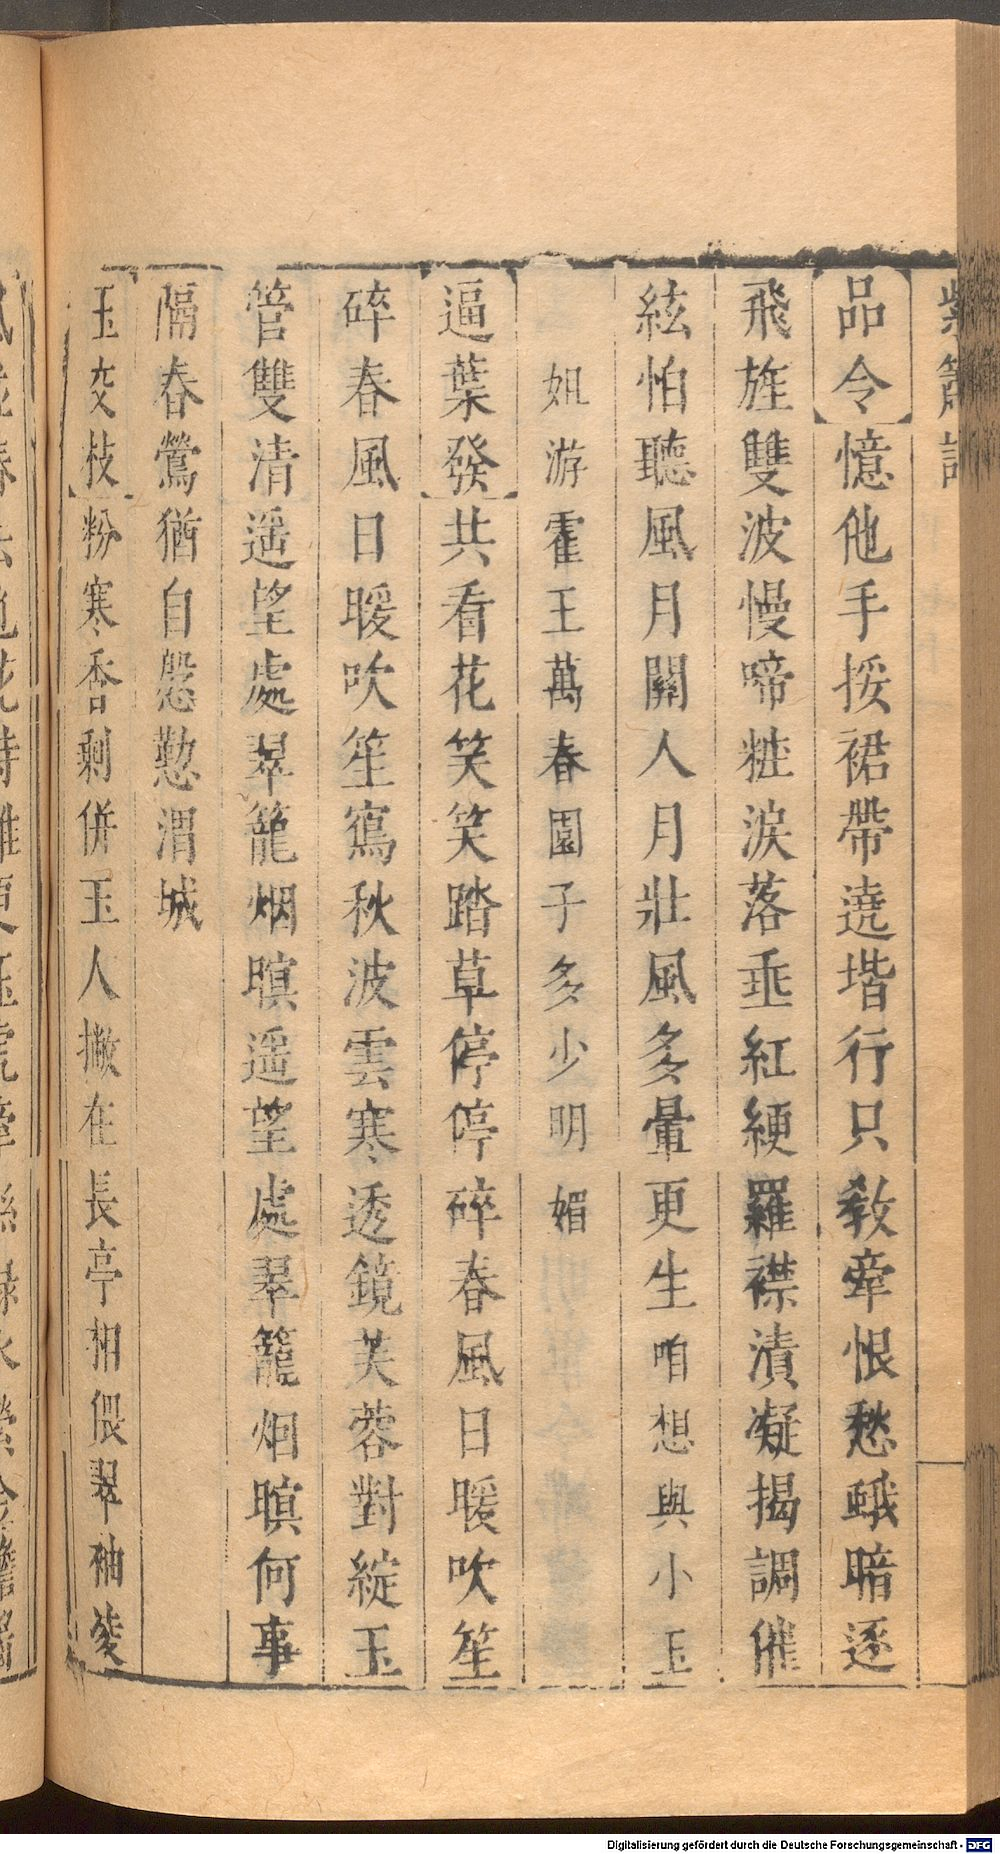 紫簫記
品令憶他手挼裙帶遶堦行只教牽恨愁蛾暗逐
飛旌雙波慢啼粧淚落垂紅綆羅襟漬凝揭調催
絃怕聽風月關人月壯風多暈更生咱想與小玉
姐游霍王萬春園子多少明媚
逼葉發共看花笑笑踏草停停碎春風日暖吹笙
碎春風日暖吹笙鴛秋波雲寒透鏡芙蓉對綻玉
管雙清遥望處翠籠烟暝遥望處翠籠烟暝何事
隔春鶯猶自慇懃渭城
玉交枝粉寒香剩併玉人撇在長亭相偎翠袖淩
Digitalisierung gefördert durch die Deutsche Forschungsgemeinschaft - DFG